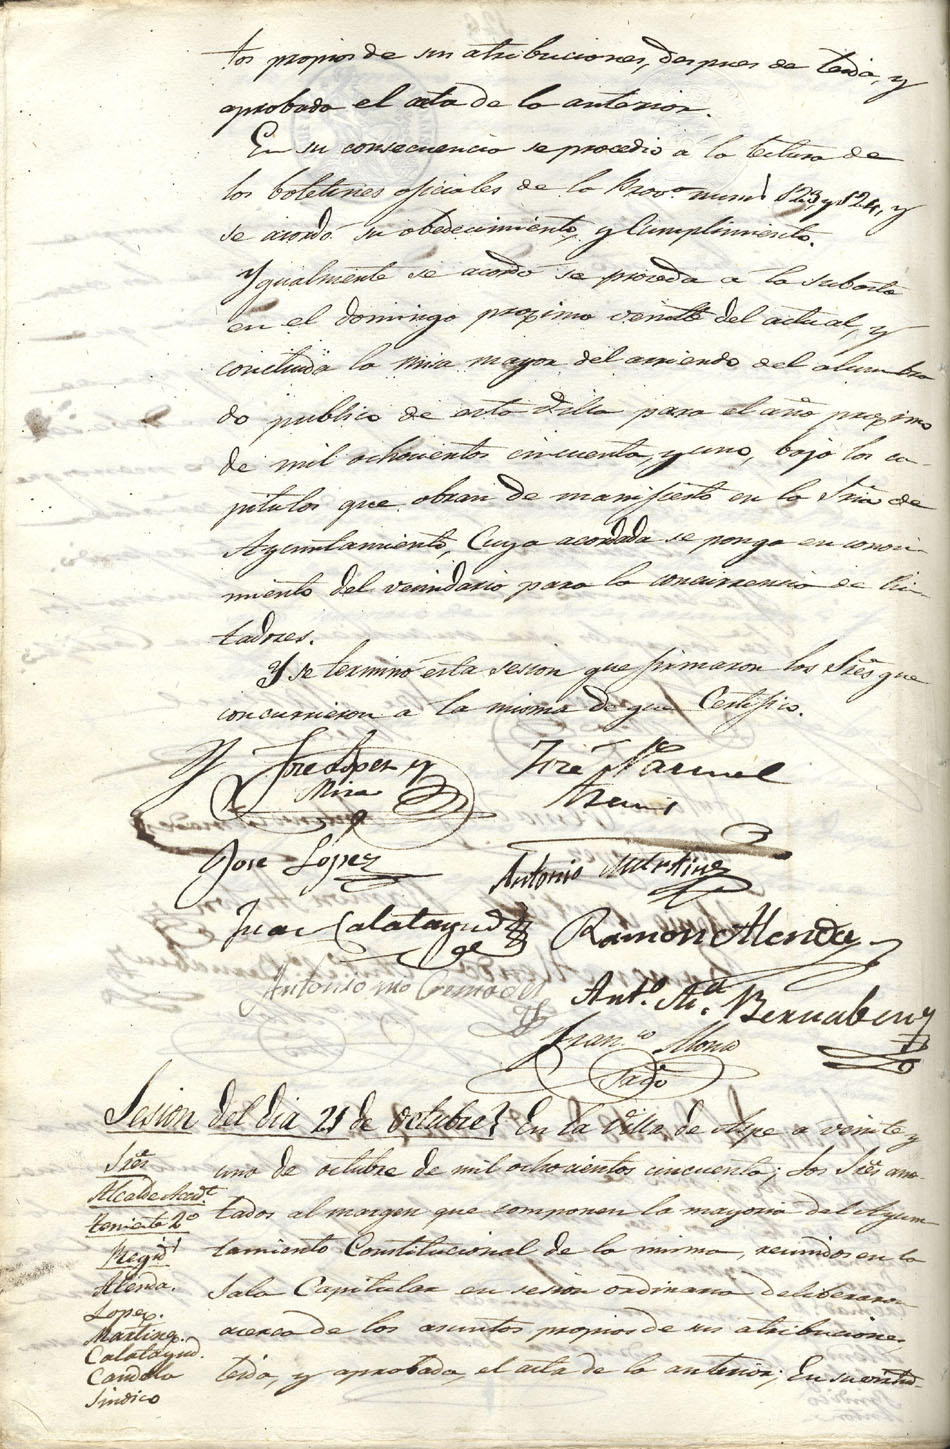 tos propios de sus atribuciones, despues de leida, y
aprobada el acta de la anterior.
En su consecuencia se procedio á la lectura de
los boletines oficiales de la Prov.ª num.s 123 y 124, y
se acordó su obedecimiento, y Cumplimiento.
Ygualmente se acordó se proceda á la subasta
en el domingo proximo veinte del actual, y
concluida la misa mayor del arriendo del alumbra
do publico de esta Villa para el año proximo
de mil ochocientos cincuenta, y uno, bajo los ca-
pitulos que obran de manifiesto en la Sria de
Ayuntamiento, Cuya acordada se ponga en conoci-
miento del vecindario para la concurrencia de lici-
tadores.
Y se terminó esta sesion que firmaron los Sres que
concurrieron a la misma de que Certifico.
Jose Lopez y
Mira
José Manuel
Jose Lopez
Antonio Martinez
Juan Calatayud
Ramon Alenda
Antonio Cremades
Ant.º M.ª Bernabeu
Fran.co
Srio
Sesion del dia 21 de Octubre
En la Villa de Aspe a veinte y
uno de octubre de mil ochocientos cincuenta; los Sres ano-
tados al margen que componen la mayoria del Ayun-
tamiento Constitucional de la misma, reunidos en la
Sala Capitular en sesion ordinaria deliberaron
acerca de los asuntos propios de sus atribuciones,
leida, y aprobada, el acta de la anterior; En su virtud-
Sres
Alcalde Acc.l
teniente 2º
Regid.s
Alenda.
Lopez.
Martinez.
Calatayud.
Candela
Sindico